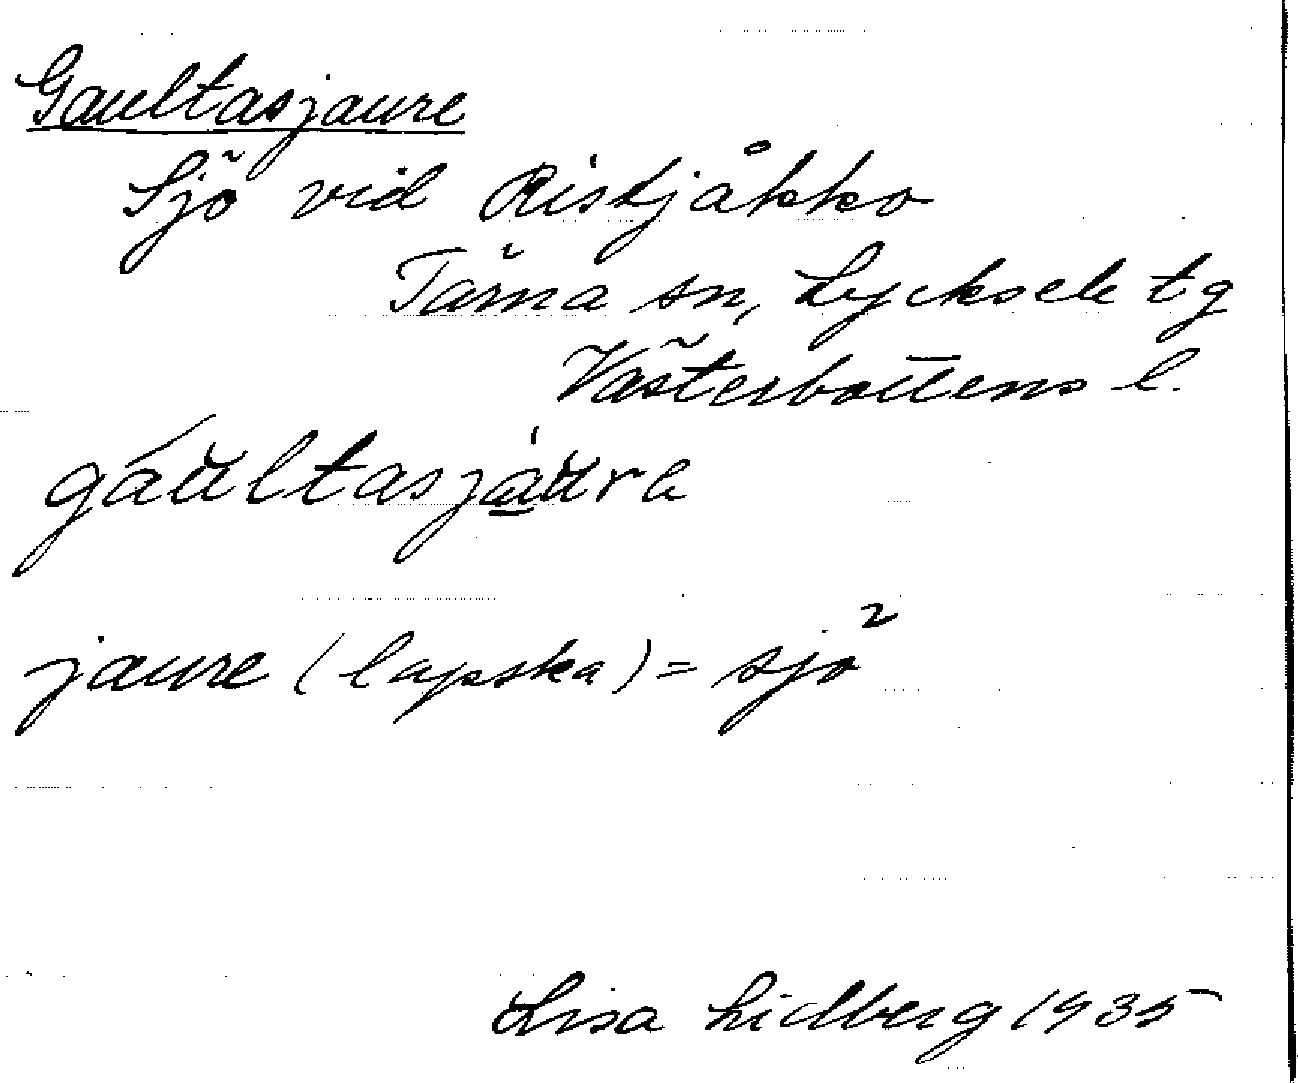 Gaultasjaure
Sjö vid Ristjåkko
Tärna sn, Lycksele tg
Västerbottens l.
gáŭltasjàŭra
jaure (lapska) = sjö
Lisa Lidberg 1935